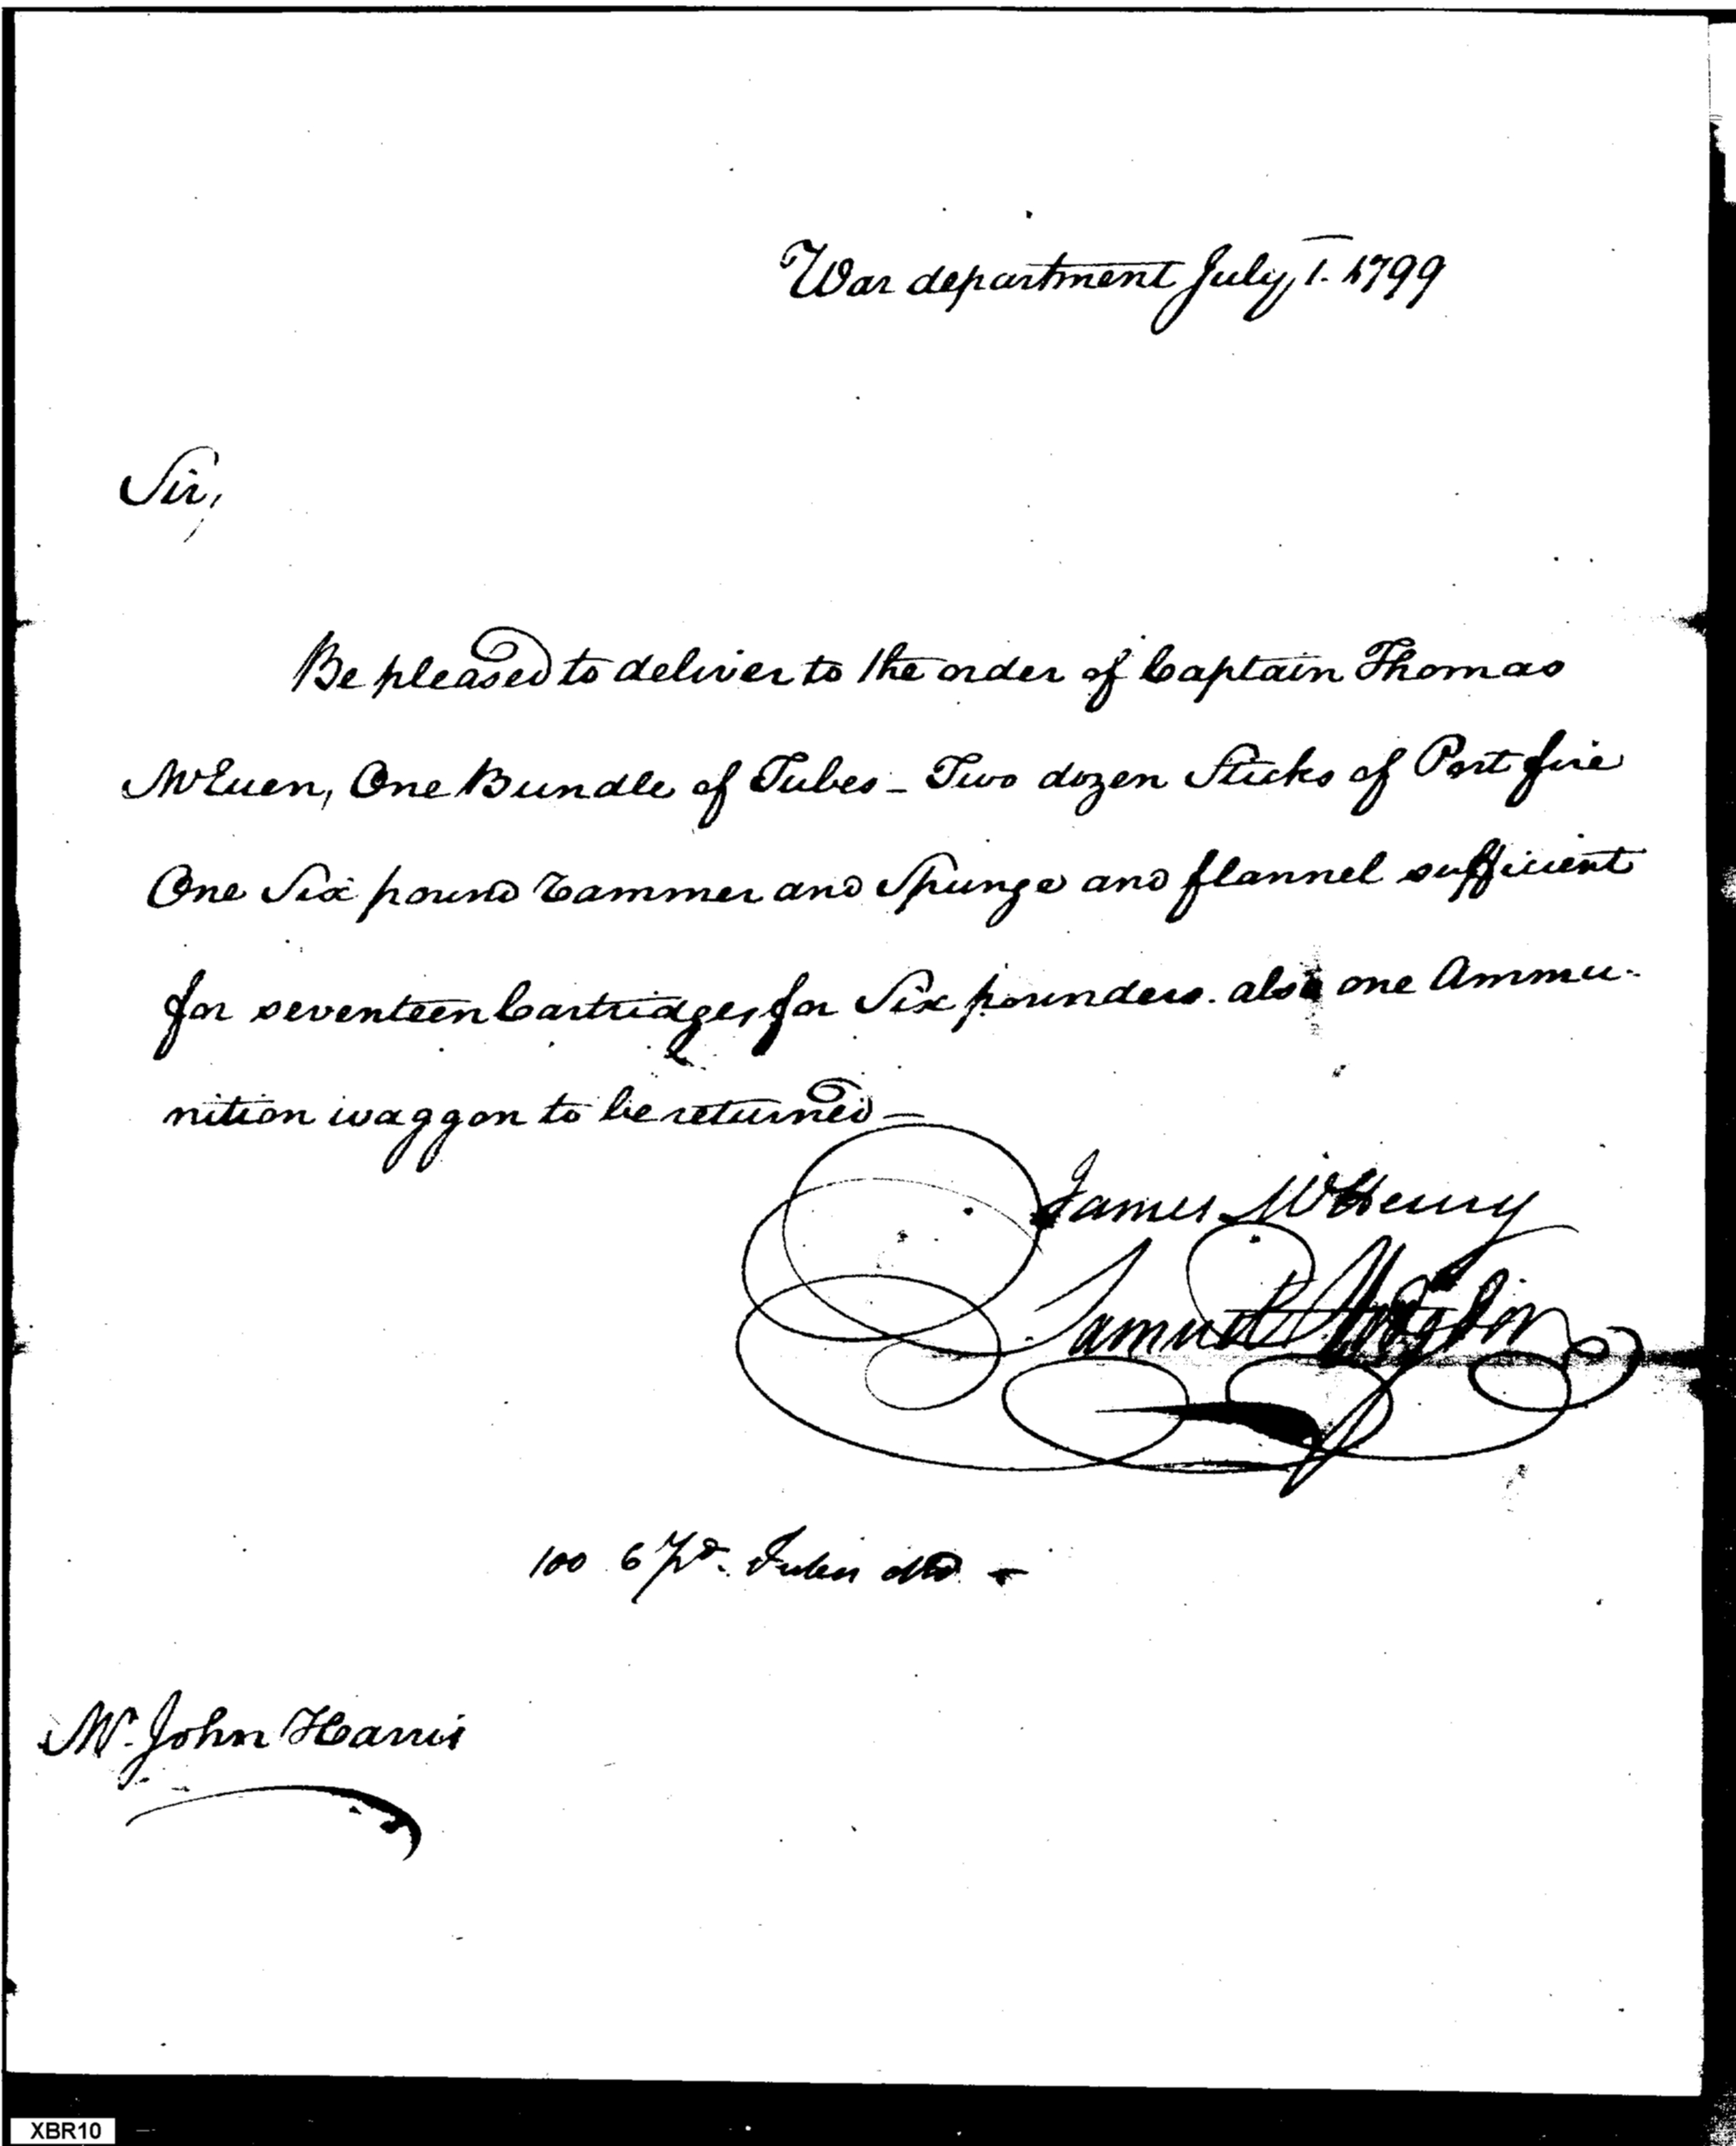 War department July 1. 1799
Sir,
Be pleased to deliver to the order of Captain Thomas
McEuen, One Bundle of Tubes - Two dozen Sticks of Port fire
One Six pound Rammer and Spunge and flannel sufficient
for seventeen Cartridges for Six pounders. also one Ammu-
nition waggon to be returned -
James McHenry
Samuel Hodgdon
100 6 Pd. Tubes
Mr. John Harris
XBR10